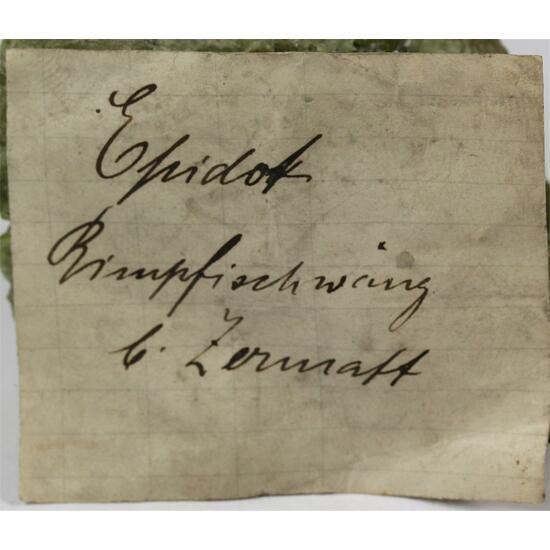 Epidot
Rimpfischwäng
b. Zermatt